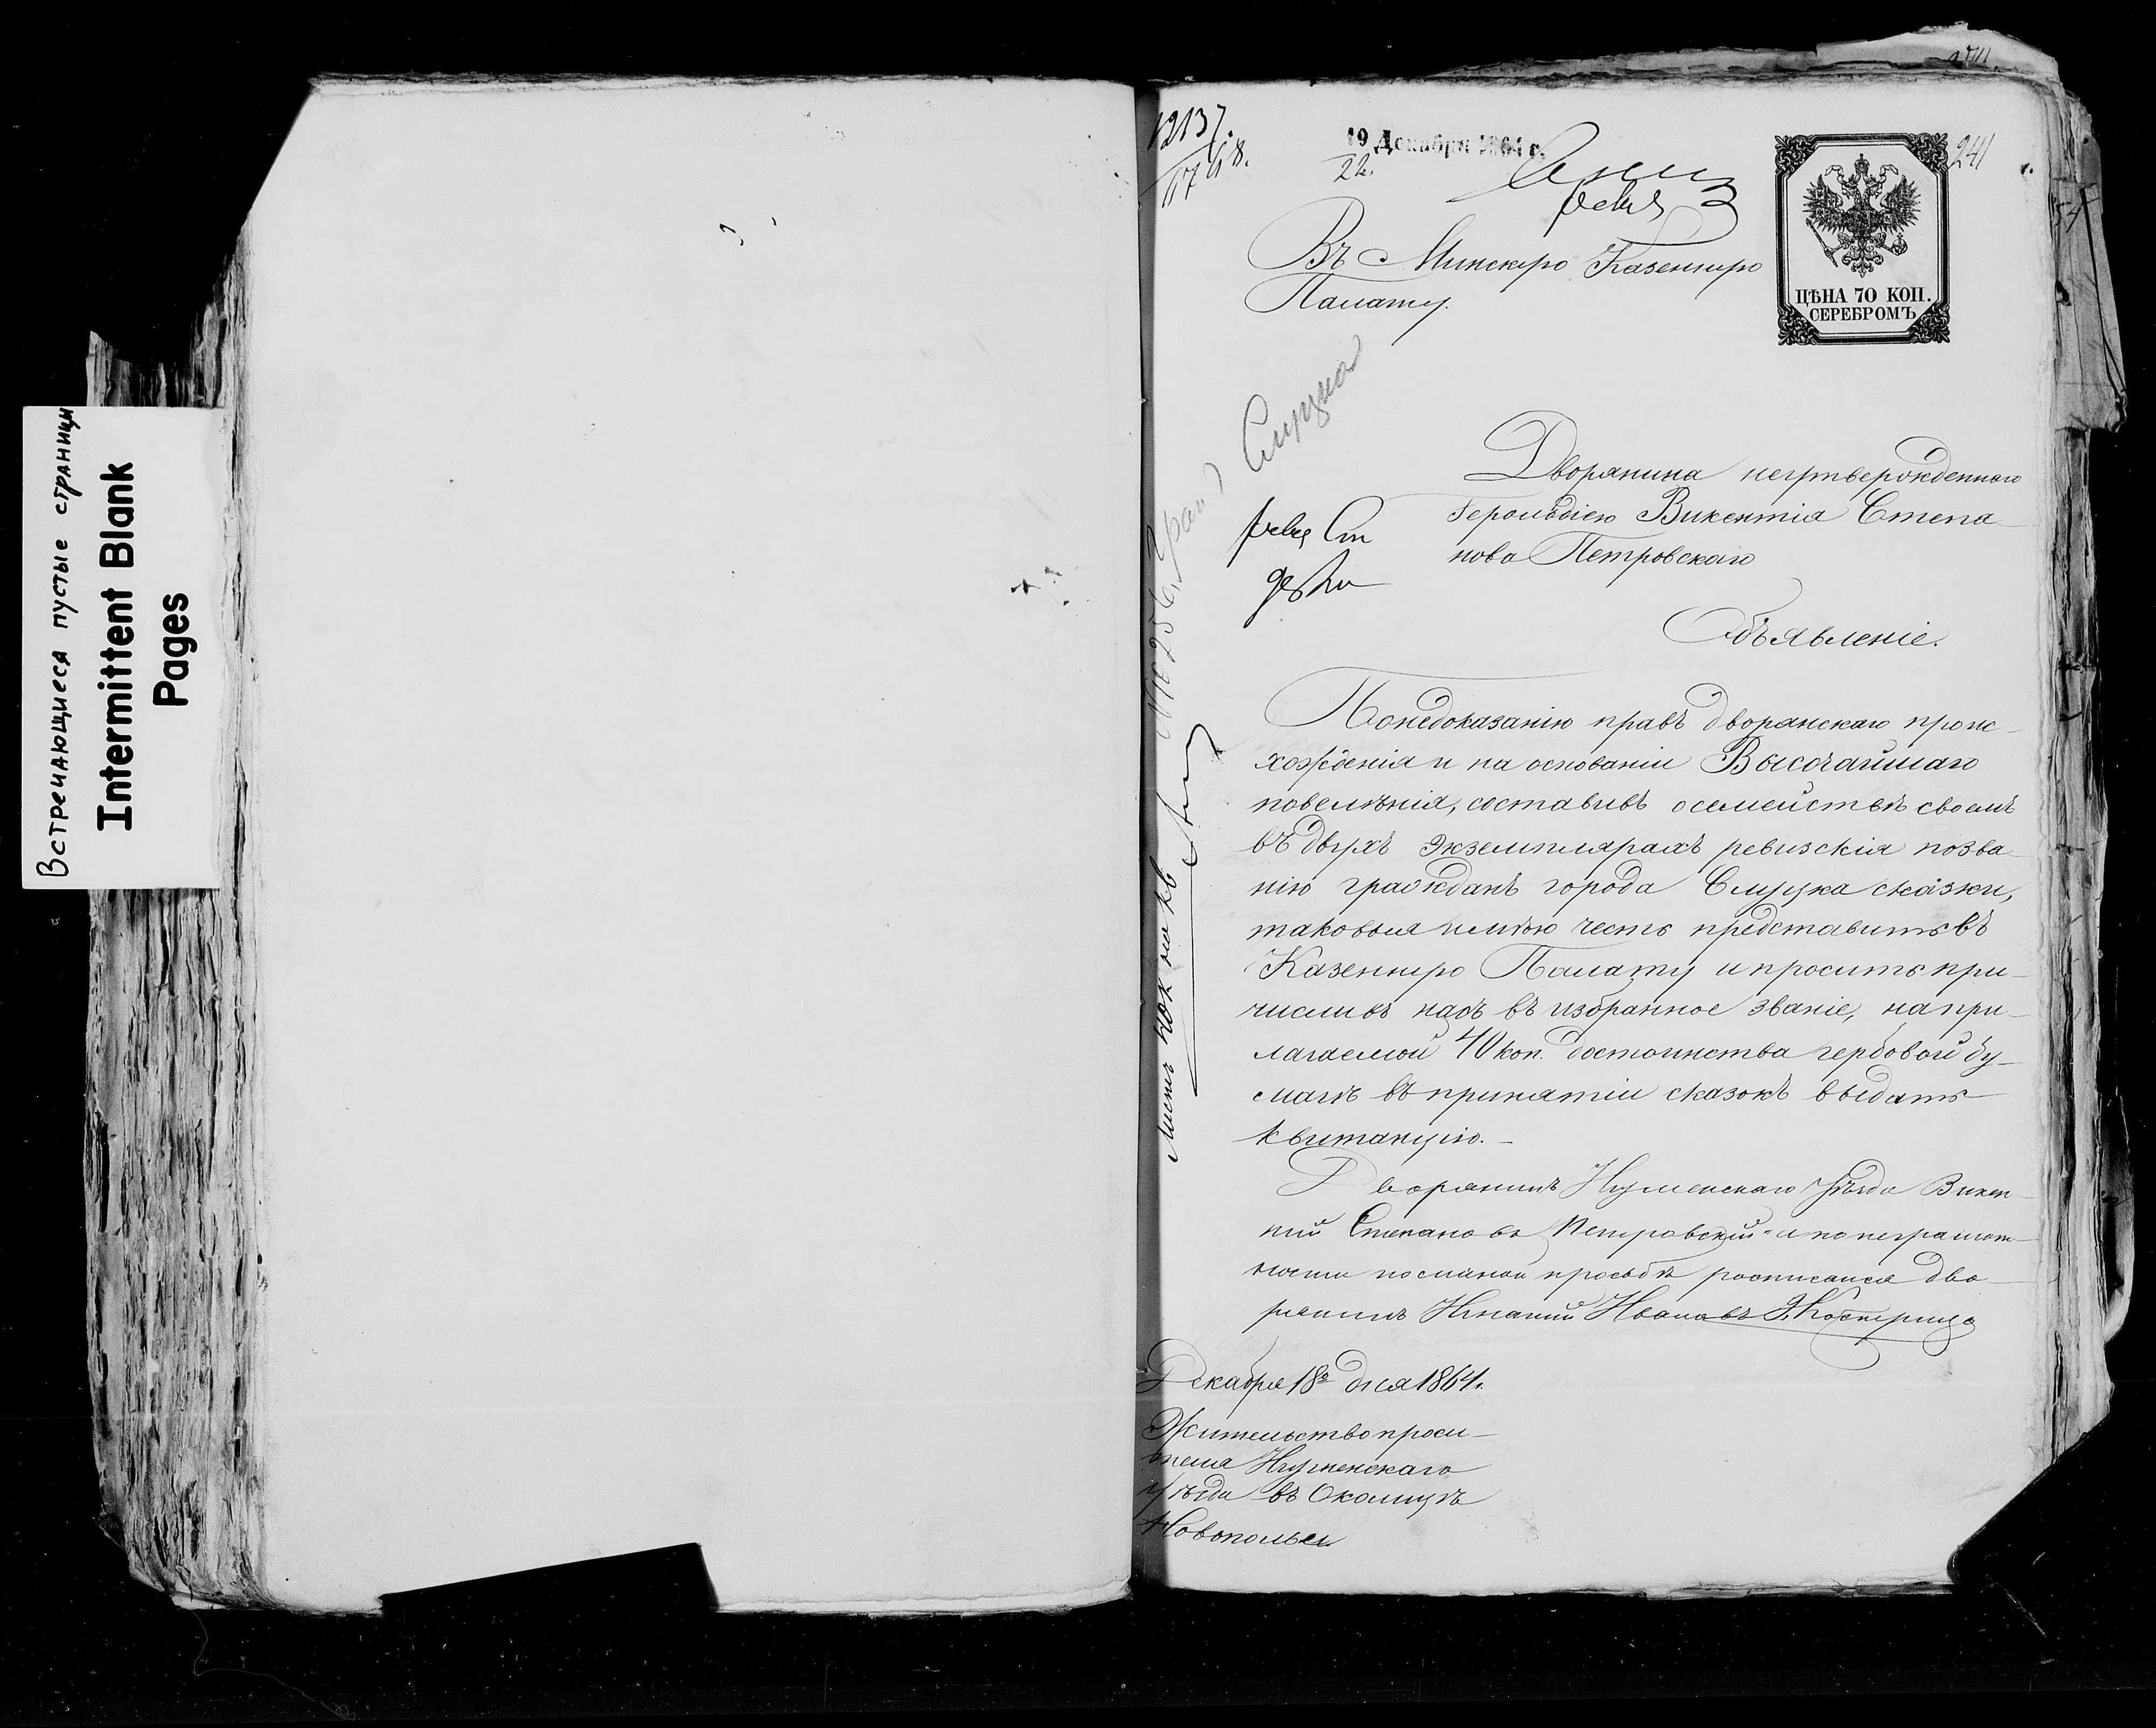 Встречающиеся пустые страницы
Intermittent Blank
Pages
12137.
1768.
19 Декабря 1864 г.
22.
241
ЦѢНА 70 КОП.
СЕРЕБРОМЪ
Въ Минскую Казенную
Палату.
Слуцка
Дворянина неутвержденнаго
Герольдіею Викентія Степа
нова Петровскаго
Объявленіе.
Понедоказанію правъ дворянскаго проис-
хожденія и на основаніи Высочайшаго
повелѣнія, составивъ о семействѣ своемъ
въ двухъ экземплярахъ ревизскія позва
нію гражданъ города Слуцка сказки,
таковыя имѣю честь представить въ
Казенную Палату и просить при-
числивъ насъ въ избранное званіе, на при-
лагаемой 40 коп. достоинства гербовой бу-
магѣ въ принятіи сказокъ выдать
квитанцію.
Дворянинъ Игуменскаго уѣзда Викен
тій Степановъ Петровскій а по неграмот
ности посмѣнои просьбѣ росписался дво
рянинъ Игнатій Ивановъ
Декабря 18го дня 1864 г.
Жительство проси-
теля Игуменскаго
уѣзда въ Околицѣ
Новополье
Листъ